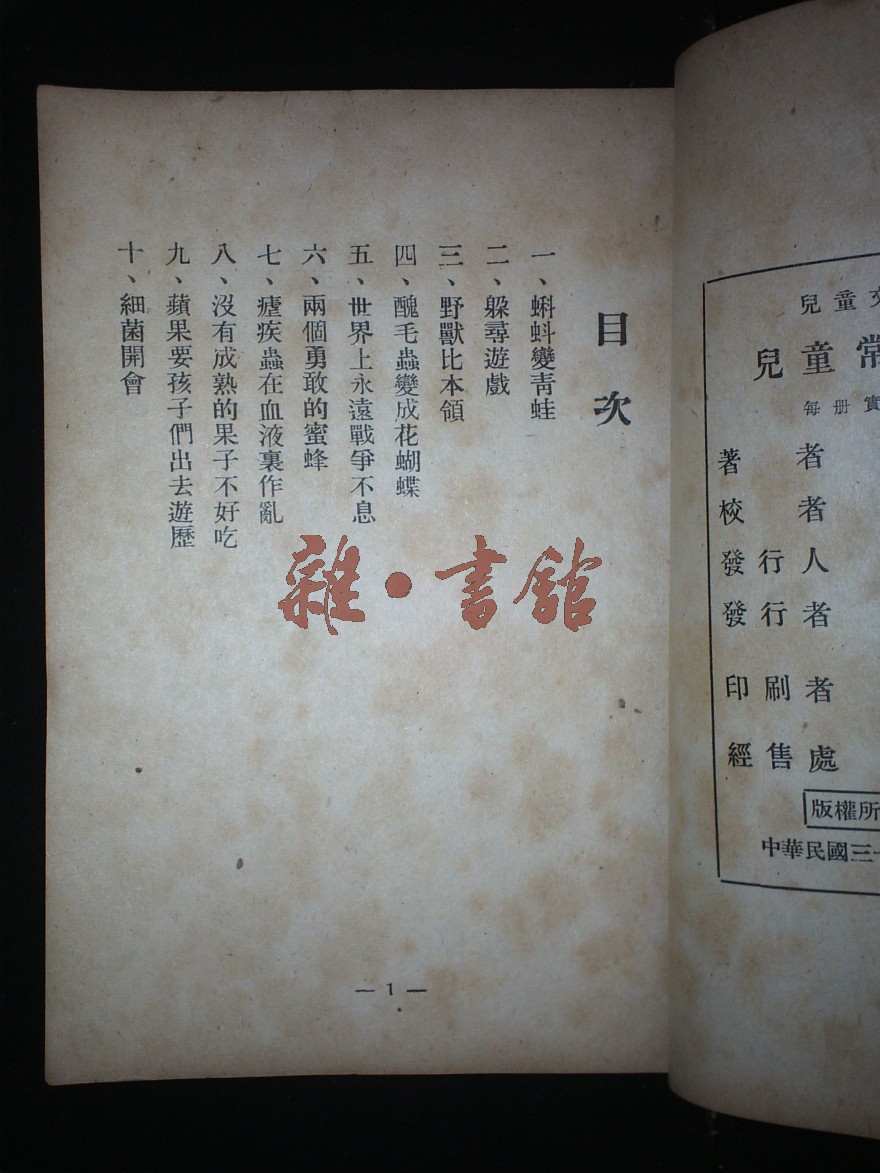 目次
一、蝌蚪變青蛙
二、躲尋遊戲
三、野獸比本領
四、醜毛蟲變成花蝴蝶
五、世界上永遠戰爭不息
六、兩個勇敢的蜜蜂
七、瘧疾蟲在血液裏作亂
八、沒有成熟的果子不好吃
九、蘋果要孩子們出去遊歷
十、細菌開會
— 1 —
雜•書館
兒童文
兒童常
每册實
著者
校者
發行人
發行者
印刷者
經售處
版權所
中華民國三十